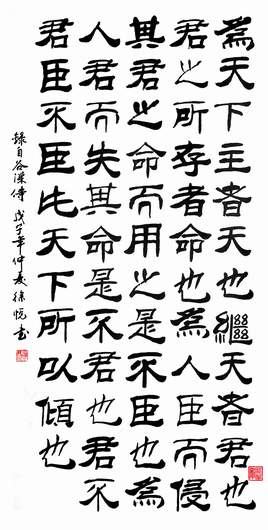 為天下主者天也繼天者君也
君之所存者命也為人臣而侵
其君之命而用之是不臣也為
人君而失其命是不君也君不
君臣不臣此天下所以傾也
錄自谷梁傳 戊子年仲夏 徐悅書